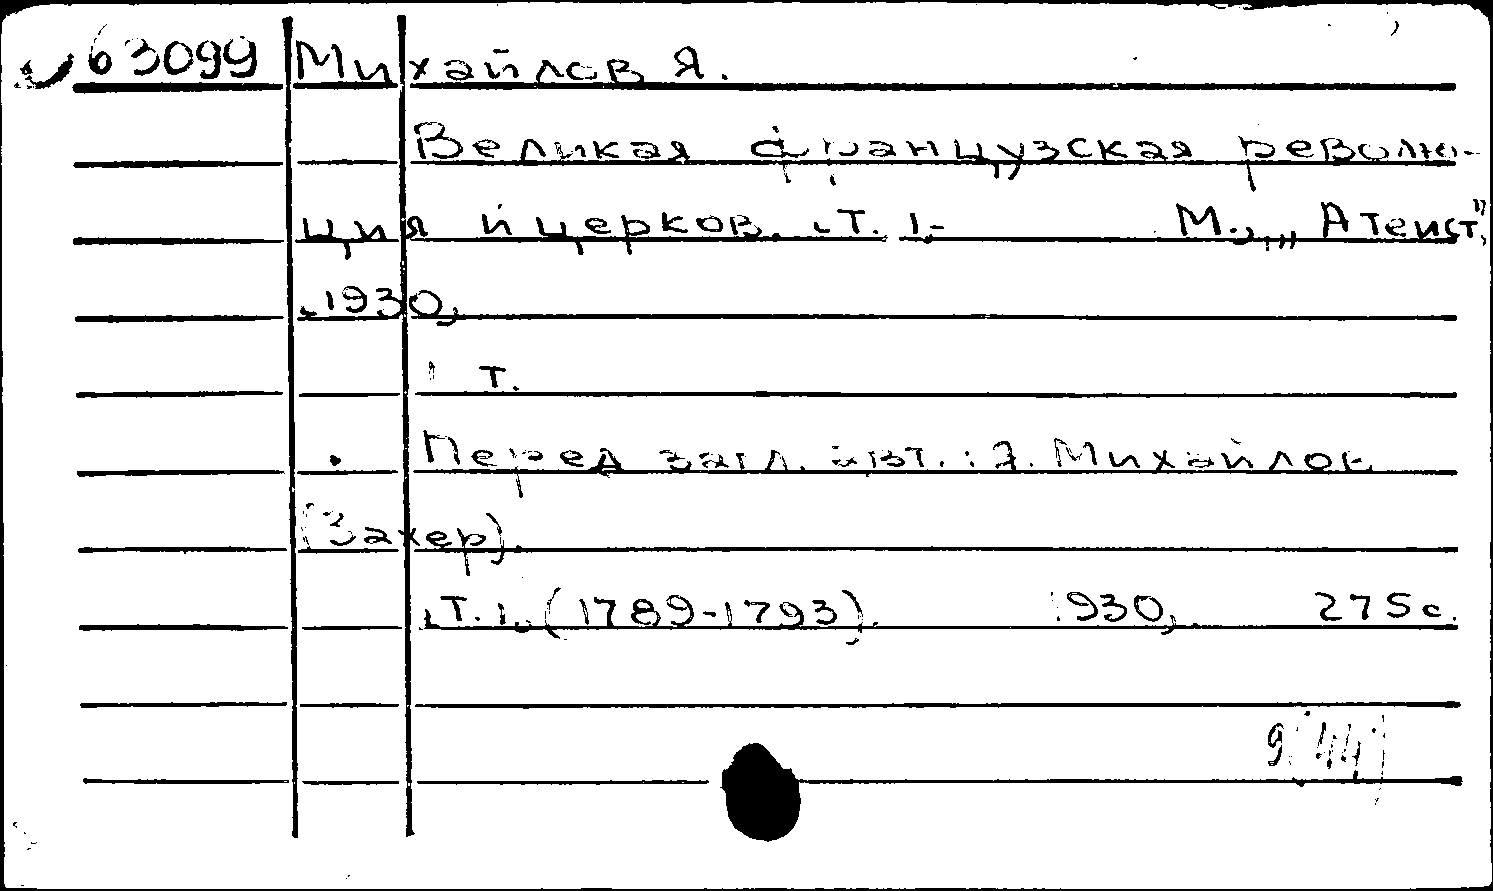 63099 Михайлов Я.
Великая французская револю-
ция и церков. Т. 1.- М., „Атеист",
1930,
1 т.
Перед загл. авт.: Я. Михайлов
(Захер).
Т. 1. (1789-1793). 1930, 275 с.
9(44)